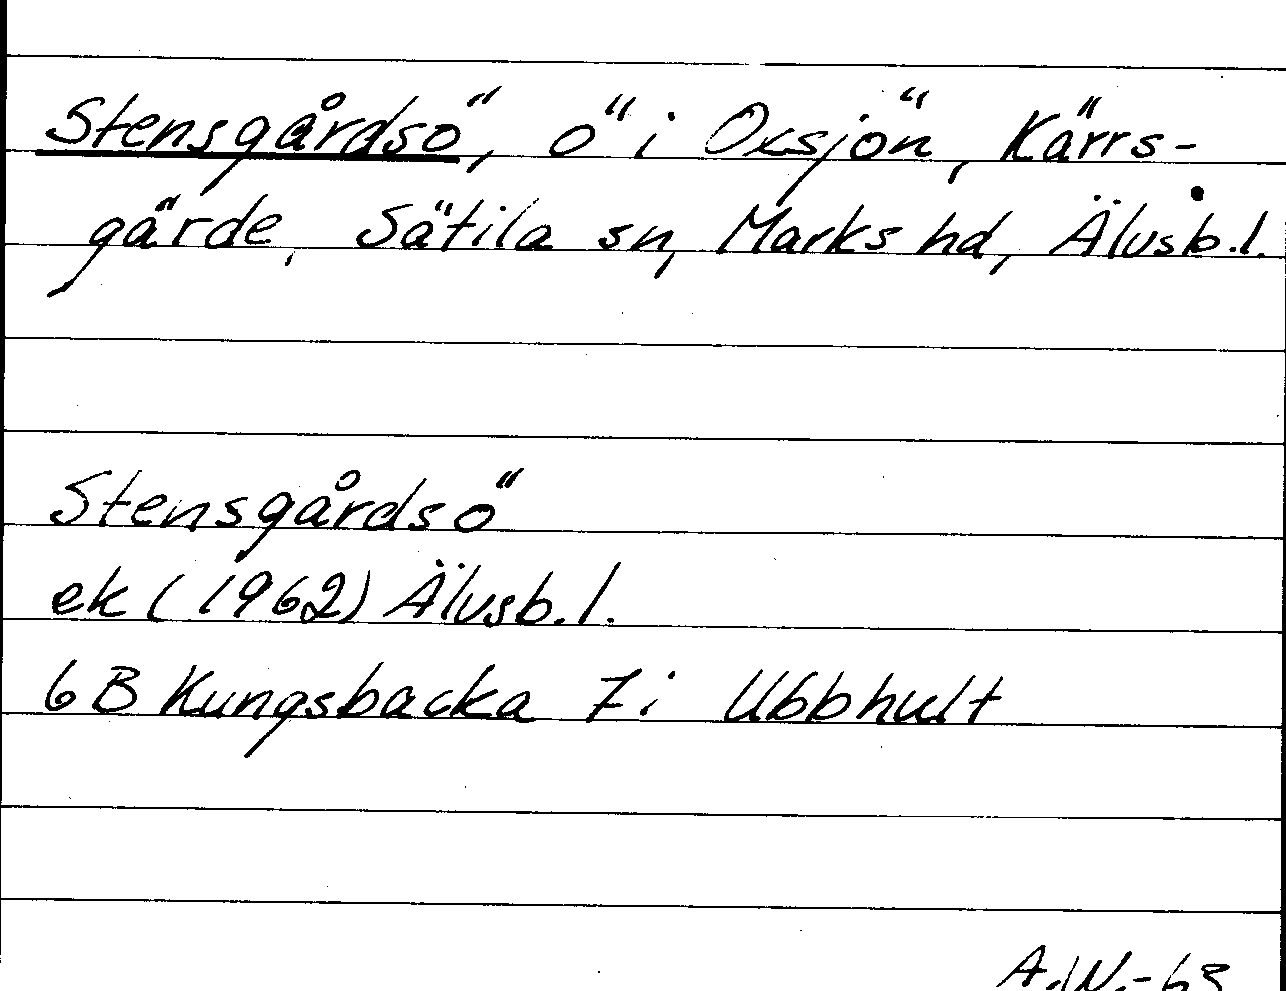 Stensgårdsö, ö i Oxsjön, Kärrs-
gärde, Sätila sn, Marks hd, Älvsb.l.
Stensgårdsö
ek (1962) Älvsb.l.
6B Kungsbacka 7i Ubbhult
A.W.-63